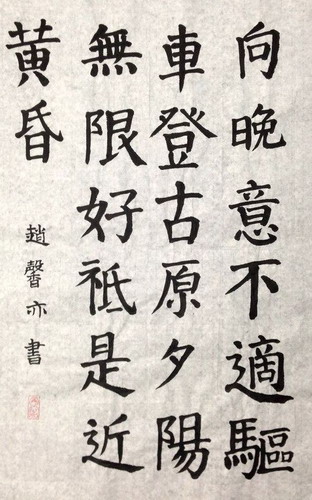 向晚意不適驅
車登古原夕陽
無限好祗是近
黃昏
趙馨亦書